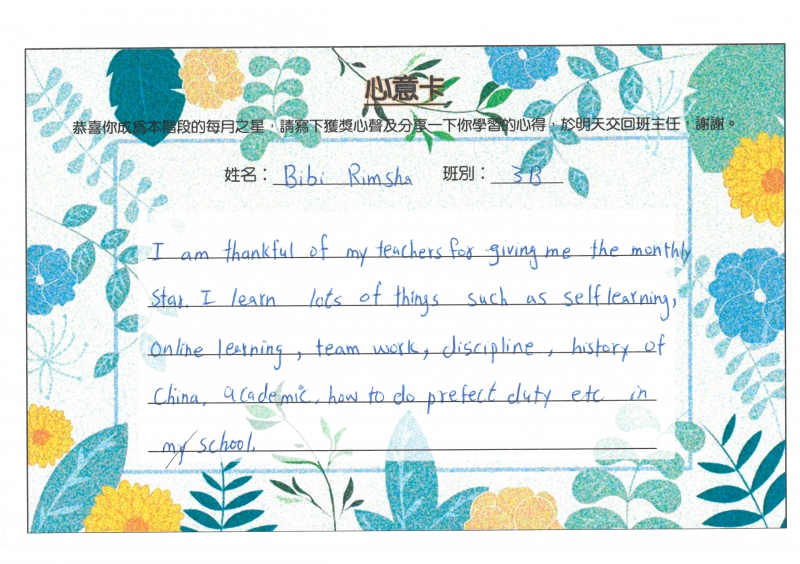 心意卡
恭喜你成為本階段的每月之星，請寫下獲獎心聲及分享一下你學習的心得，於明天交回班主任，謝謝。
姓名： Bibi Rimsha 班別： 3B
I am thankful of my teachers for giving me the monthly
star. I learn lots of things such as self learning,
online learning, team work, discipline, history of
China, academic, how to do prefect duty etc in
my school.